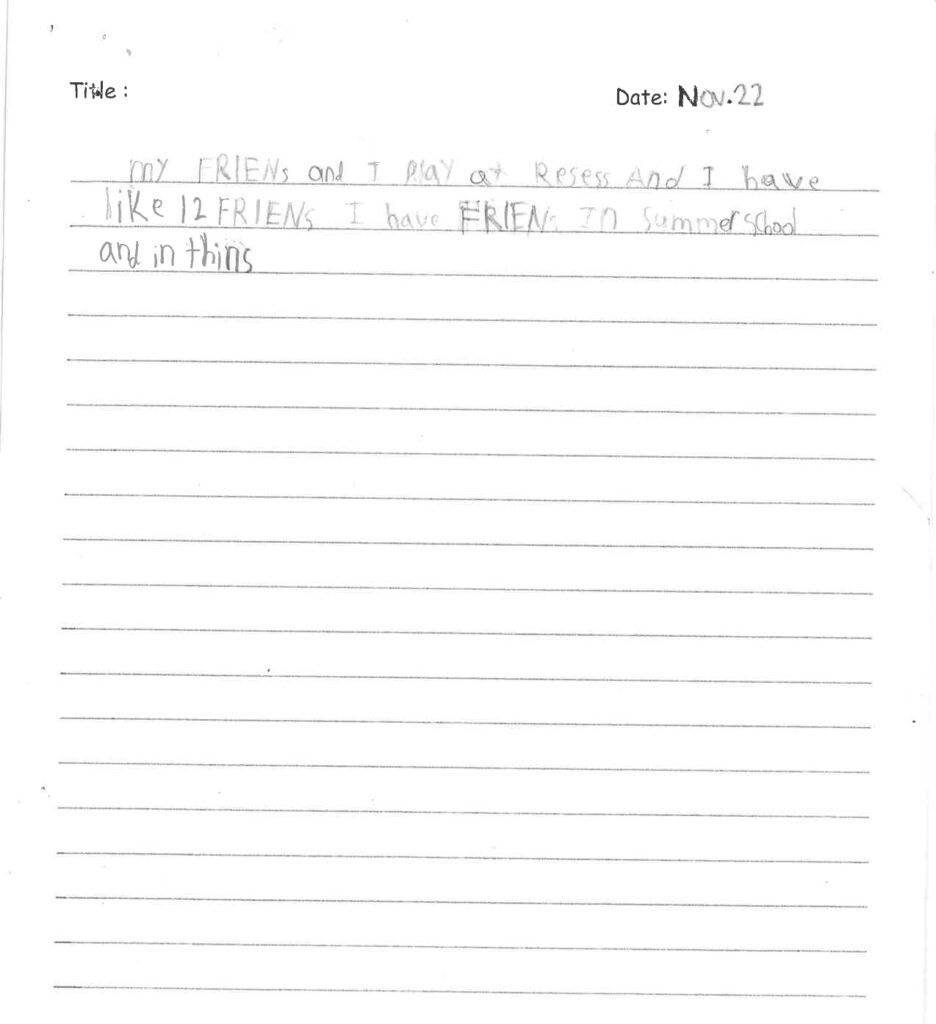 Title :
Date: Nov.22
my FRIENs and I PlAY at Resess And I have
like 12 FRIENs I have FRIENs In summer school
and in thins